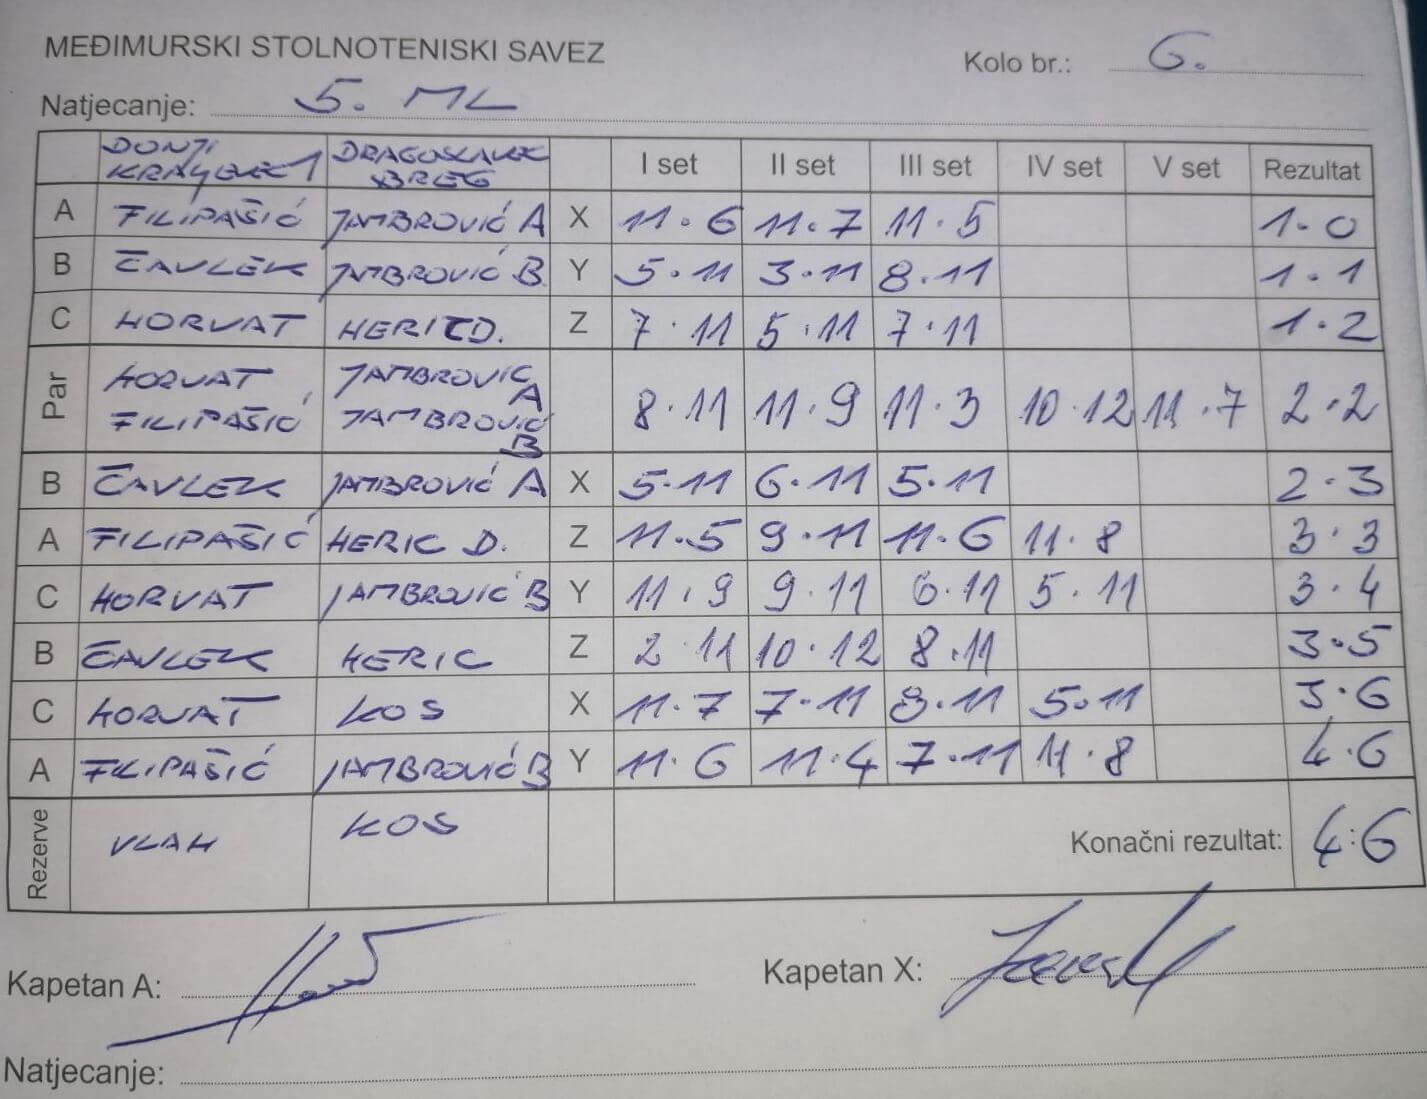 MEĐIMURSKI STOLNOTENISKI SAVEZ
Kolo br.: 6.
Natjecanje: 5. ML
DONJI KRALJEVEC 1 DRAGOSLAVEC BREG I set II set III set IV set V set Rezultat
A FILIPAŠIĆ JAMBROVIĆ A X 11.6 11.7 11.5 1.0
B ČAVLEK JAMBROVIĆ B Y 5.11 3.11 8.11 1.1
C HORVAT HERIC D. Z 7.11 5.11 7.11 1.2
Par HORVAT FILIPAŠIĆ JAMBROVIĆ A JAMBROVIĆ B 8.11 11.9 11.3 10.12 11.7 2.2
B ČAVLEK JAMBROVIĆ A X 5.11 6.11 5.11 2.3
A FILIPAŠIĆ HERIC D. Z 11.5 9.11 11.6 11.8 3.3
C HORVAT JAMBROVIĆ B Y 11.9 9.11 6.11 5.11 3.4
B ČAVLEK HERIC Z 2.11 10.12 8.11 3.5
C HORVAT KOS X 11.7 7.11 8.11 5.11 3.6
A FILIPAŠIĆ JAMBROVIĆ B Y 11.6 11.4 7.11 11.8 4.6
Rezerve VLAH KOS Konačni rezultat: 4:6
Kapetan A: Kapetan X:
Natjecanje: